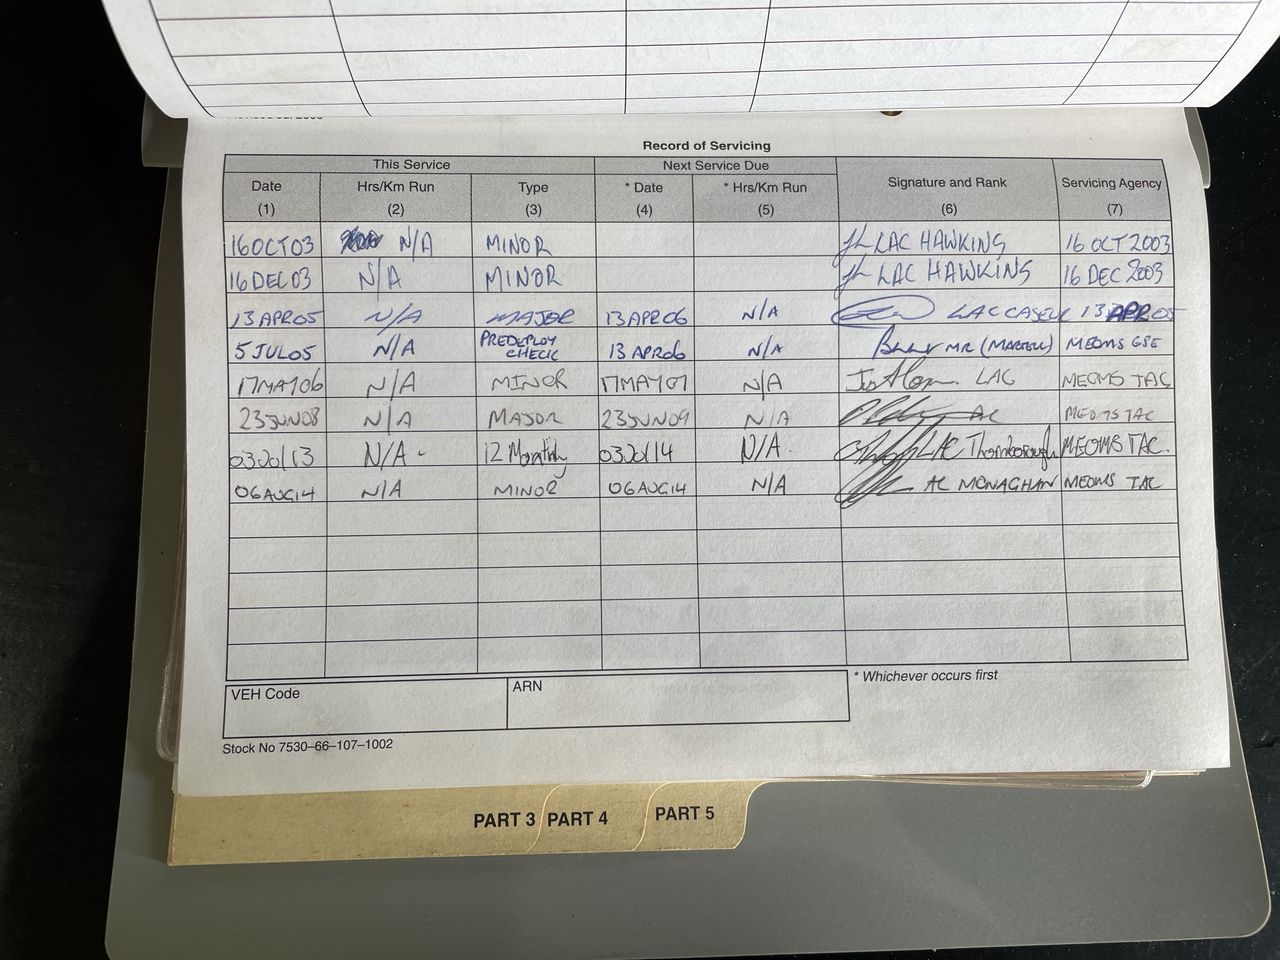 Record of Servicing
This Service Next Service Due
Date Hrs/Km Run Type * Date * Hrs/Km Run Signature and Rank Servicing Agency
(1) (2) (3) (4) (5) (6) (7)
16 OCT 03 N/A MINOR LAC HAWKINS 16 OCT 2003
16 DEC 03 N/A MINOR LAC HAWKINS 16 DEC 2003
13 APR 05 N/A MAJOR 13 APR 06 N/A LAC 13 APR 05
5 JUL 05 N/A PREDEPLOY CHECK 13 APR 06 N/A MR MEOMS GSE
17 MAY 06 N/A MINOR 17 MAY 07 N/A LAC MEOMS TAC
23 JUN 08 N/A MAJOR 23 JUN 09 N/A AC MEOMS TAC
03 Jul 13 N/A 12 Monthly 03 Jul 14 N/A. LAC Thornborough MEOMS TAC.
06 AUG 14 N/A MINOR 06 AUG 14 N/A AC MONAGHAN MEOMS TAC
VEH Code ARN * Whichever occurs first
Stock No 7530–66–107–1002
PART 3 PART 4 PART 5